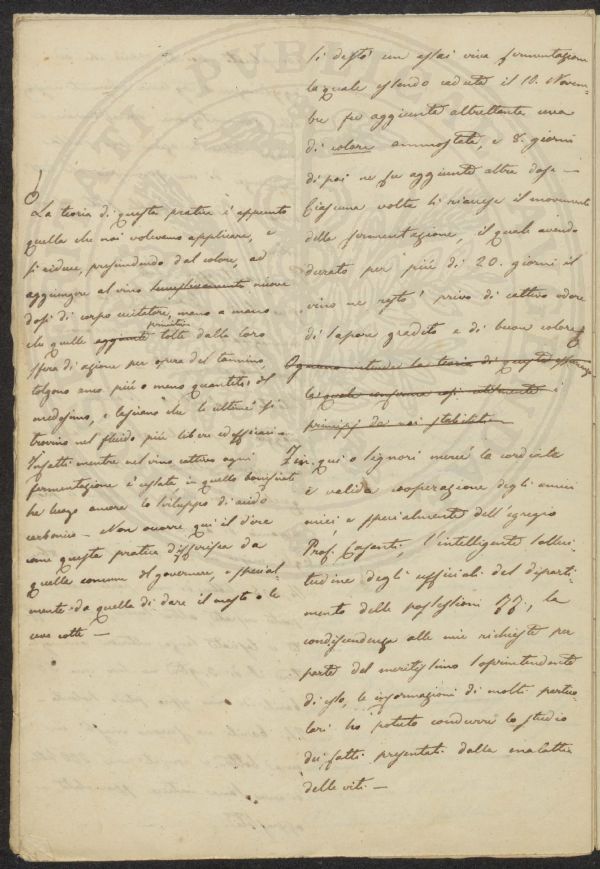 si destò un assai viva fermentazione
la quale essendo caduta il 18. Novem-
bre fu aggiunta altrettanta uva
di colore ammostata, e 8. giorni
di poi ne fu aggiunta altra dose —
Ciascuna volta si riaccese il movimento
della fermentazione, il quale avendo
durato per più di 20. giorni il
vino ne restò privo di cattivo odore
di sapore gradito e di buon colore
Ognuno intende la teoria di questo
la quale conferma così i
principj da noi stabiliti —
Fin qui o Signori mercè la cordiale
e valida cooperazione degli amici
miei, e specialmente dell'egregio
Prof. l'intelligente solleci-
tudine degli uffiziali del diparti-
mento delle possessioni la
condiscendenza alle mie richieste per
parte del meritissimo Soprintendente
di esso, le informazioni di molti partico-
lari ho potuto condurre lo studio
dei fatti presentati dalla malattia
delle viti —
La teoria di questa pratica è appunto
quella che noi volevamo applicare, e
si riduce, prescindendo dal colore, ad
aggiungere al vino semplicemente nuove
dosi di corpo eccitatore, mano a mano
che quelle aggiunte primitive tolte dalla loro
sfera di azione per opera del tannino,
tolgono anco più o meno quantità del
medesimo, e lasciano che le ultime si
trovino nel fluido più libere ed efficaci —
Infatti mentre nel vino cattivo ogni
fermentazione è cessata in quello bonificato
ha luogo ancora lo sviluppo di acido
carbonico — Non occorre qui il dire
come questa pratica differisca da
quella comune del governare, e special-
mente da quella di dare il mosto o le
uve cotte —